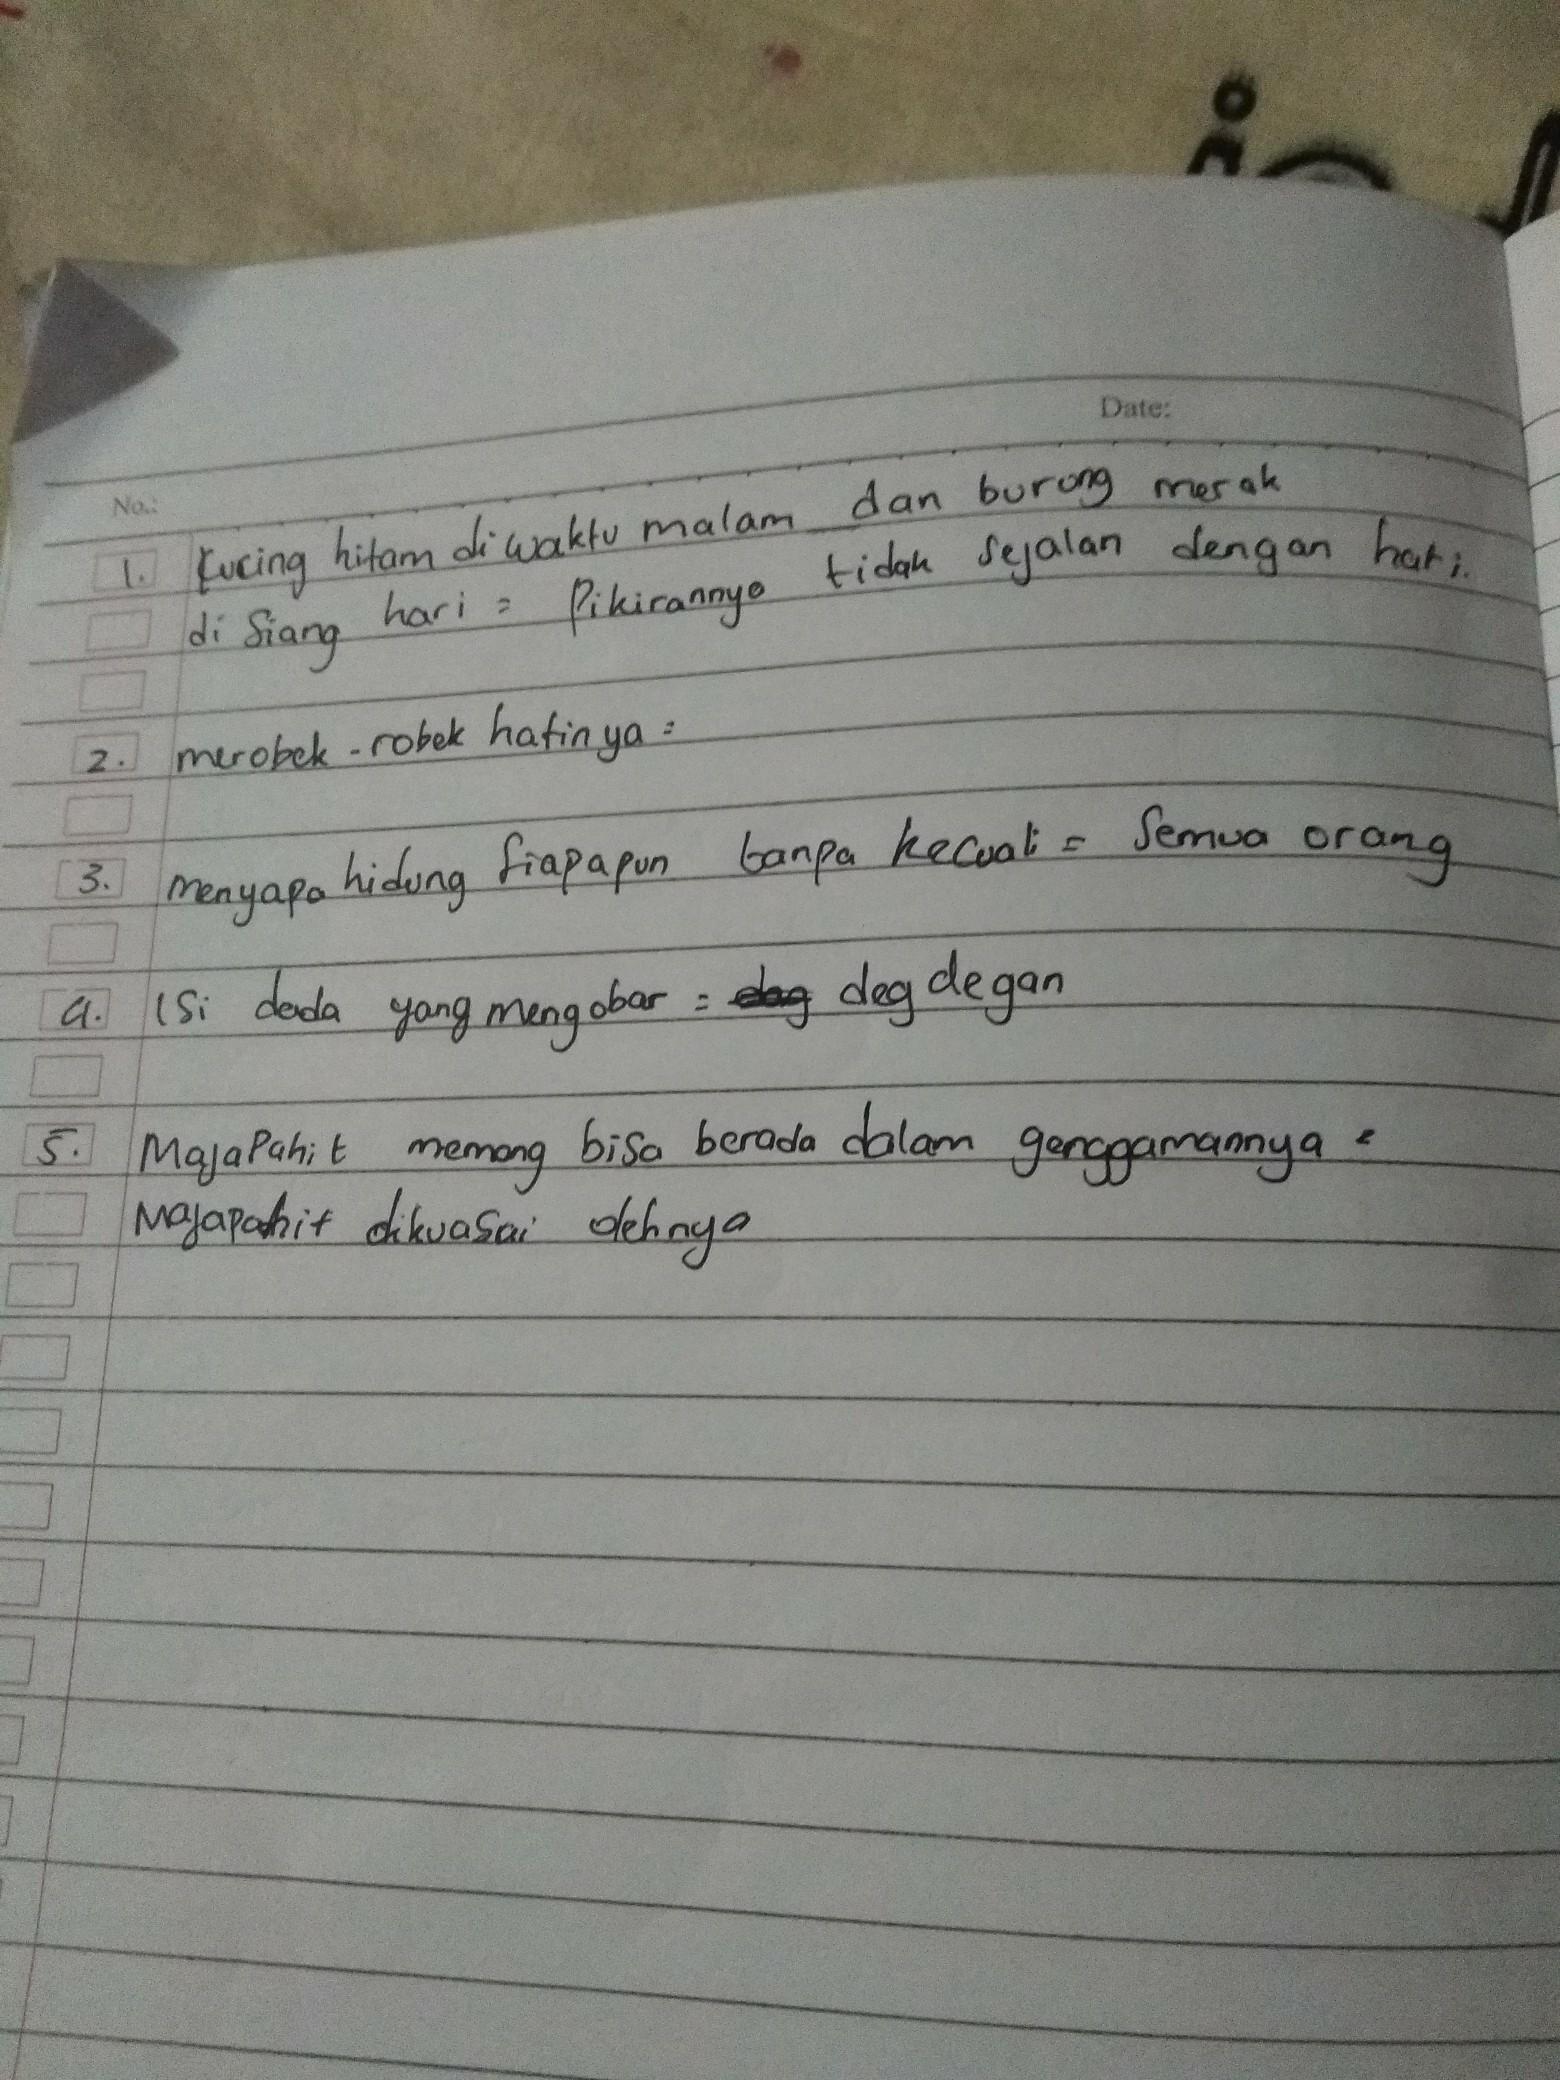 Date:
No.:
1. Kucing hitam di waktu malam dan burung merak
di siang hari = Pikirannya tidak sejalan dengan hati.
2. merobek-robek hatinya =
3. menyapa hidung siapapun tanpa kecuali = Semua orang
4. Isi dada yang mengobar = deg degan
5. MajaPahit memang bisa berada dalam genggamannya =
Majapahit dikuasai olehnya